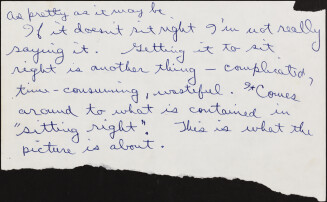 as pretty as it may be.
If it doesn't sit right I'm not really
saying it. Getting it to sit
right is another thing – complicated,
time-consuming, wasteful. It comes
around to what is contained in
"sitting right". This is what the
picture is about.